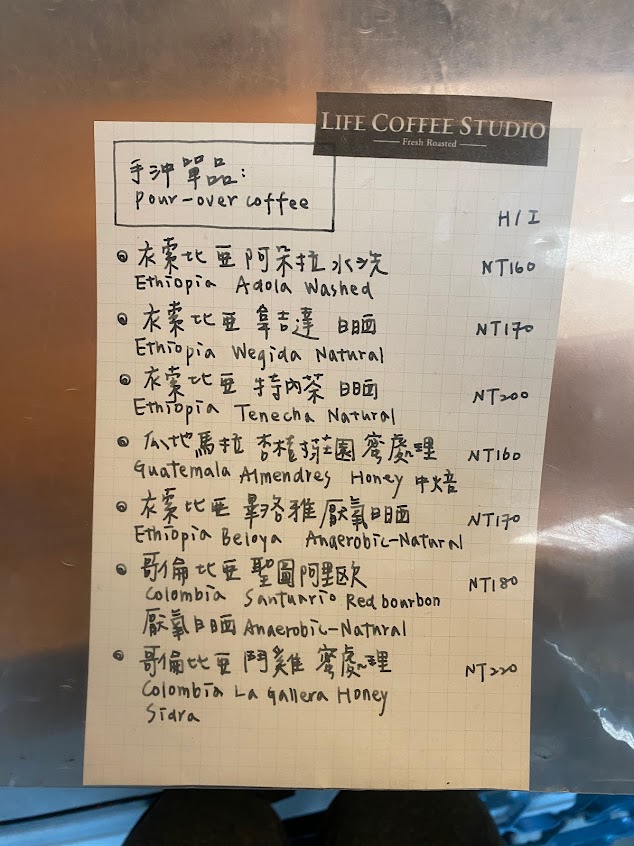 LIFE COFFEE STUDIO
Fresh Roasted
手沖單品:
Pour-over coffee
H/I
衣索比亞 阿朵拉 水洗 NT160
Ethiopia Adola Washed
衣索比亞 韋吉達 日晒 NT170
Ethiopia Wegida Natural
衣索比亞 特內茶 日晒 NT200
Ethiopia Tenecha Natural
瓜地馬拉 杏樹莊園 蜜處理 NT160
Guatemala Almendres Honey 中焙
衣索比亞 畢洛雅 厭氧日晒 NT170
Ethiopia Beloya Anaerobic-Natural
哥倫比亞 聖圖阿里歐 NT180
Colombia Santuario Red bourbon
厭氧日晒 Anaerobic-Natural
哥倫比亞 鬥雞 蜜處理 NT220
Colombia La Gallera Honey
Sidra